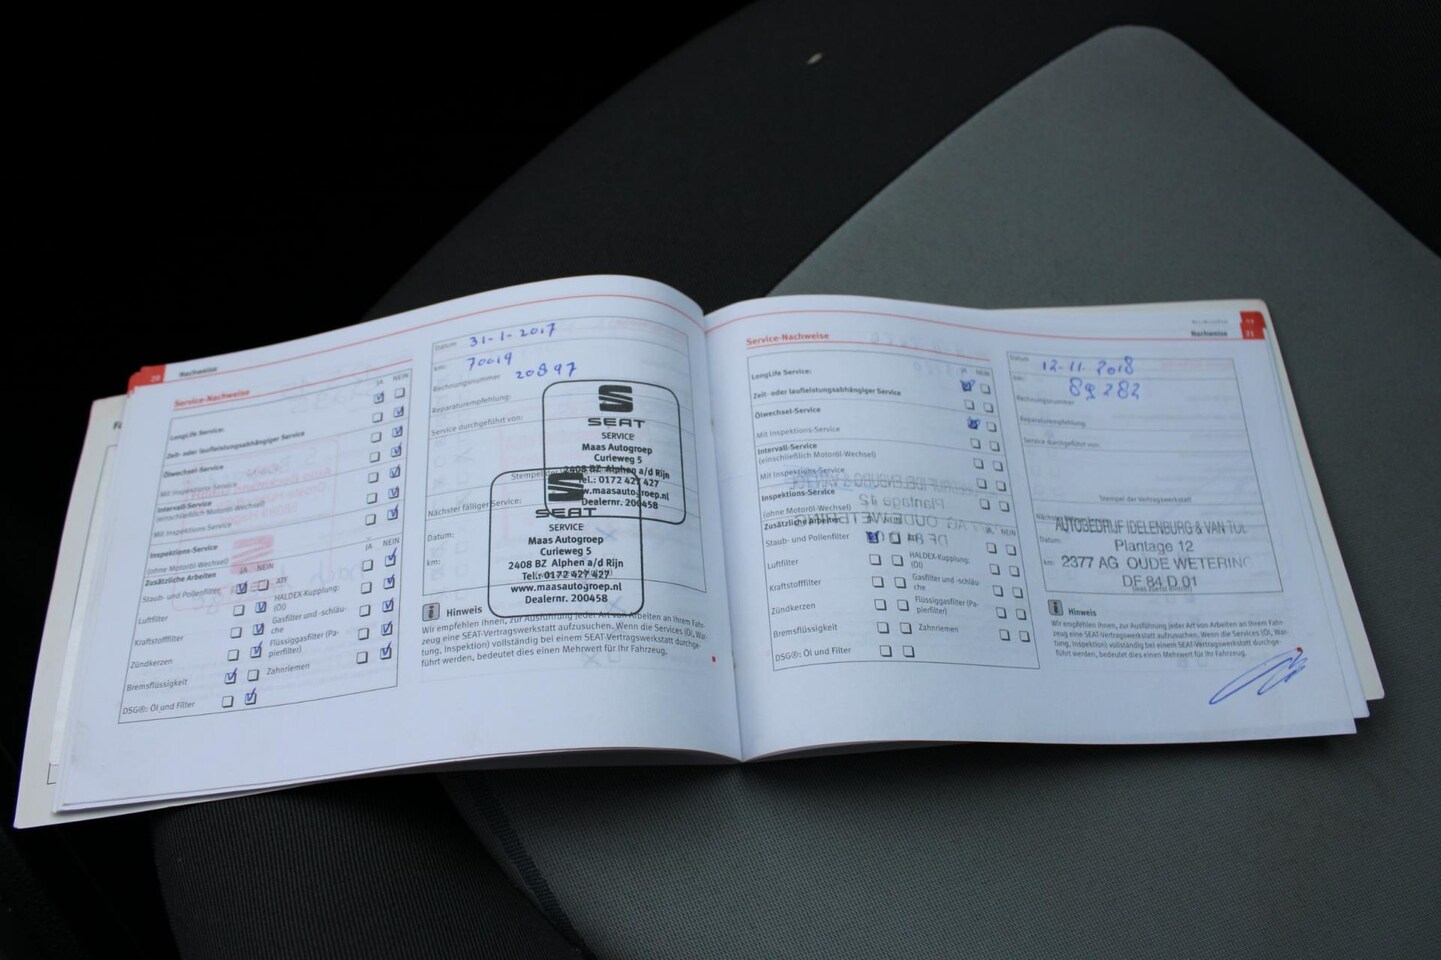 20 Nachweise
Service-Nachweise
JA NEIN
LongLife Service:
Zeit- oder laufleistungsabhängiger Service
Ölwechsel-Service
Mit Inspektions-Service
Intervall-Service
(einschließlich Motoröl-Wechsel)
Mit Inspektions-Service
Inspektions-Service
(ohne Motoröl-Wechsel)
Zusätzliche Arbeiten
JA NEIN
JA NEIN
Staub- und Pollenfilter
Luftfilter
Kraftstofffilter
Zündkerzen
Bremsflüssigkeit
DSG®: Öl und Filter
ATF
HALDEX-Kupplung:
(Öl)
Gasfilter und -schläu-
che
Flüssiggasfilter (Pa-
pierfilter)
Zahnriemen
Datum 31-1-2017
km: 70019
Rechnungsnummer 20897
Reparaturempfehlung:
Service durchgeführt von:
SEAT
SERVICE
Maas Autogroep
Curieweg 5
2408 BZ Alphen a/d Rijn
Tel.: 0172 427 427
www.maasautogroep.nl
Dealernr. 200458
Nächster fälliger Service:
Datum:
km:
SEAT
SERVICE
Maas Autogroep
Curieweg 5
2408 BZ Alphen a/d Rijn
Tel.: 0172 427 427
www.maasautogroep.nl
Dealernr. 200458
Hinweis
Wir empfehlen Ihnen, zur Ausführung jeder Art von Arbeiten an Ihrem Fahr-
zeug eine SEAT-Vertragswerkstatt aufzusuchen. Wenn die Services (Öl, War-
tung, Inspektion) vollständig bei einem SEAT-Vertragswerkstatt durchge-
führt werden, bedeutet dies einen Mehrwert für Ihr Fahrzeug.
Nachweise 21
Service-Nachweise
JA NEIN
LongLife Service:
Zeit- oder laufleistungsabhängiger Service
Ölwechsel-Service
Mit Inspektions-Service
Intervall-Service
(einschließlich Motoröl-Wechsel)
Mit Inspektions-Service
Inspektions-Service
(ohne Motoröl-Wechsel)
Zusätzliche Arbeiten
JA NEIN
Staub- und Pollenfilter
Luftfilter
Kraftstofffilter
Zündkerzen
Bremsflüssigkeit
DSG®: Öl und Filter
HALDEX-Kupplung:
(Öl)
Gasfilter und -schläu-
che
Flüssiggasfilter (Pa-
pierfilter)
Zahnriemen
Datum 12-11-2018
km: 89282
Rechnungsnummer
Reparaturempfehlung:
Service durchgeführt von:
Stempel der Vertragswerkstatt
AUTOBEDRIJF IDELENBURG & VAN TOL
Datum:
Plantage 12
km: 2377 AG OUDE WETERING
DF 84 D 01
Hinweis
Wir empfehlen Ihnen, zur Ausführung jeder Art von Arbeiten an Ihrem Fahr-
zeug eine SEAT-Vertragswerkstatt aufzusuchen. Wenn die Services (Öl, War-
tung, Inspektion) vollständig bei einem SEAT-Vertragswerkstatt durchge-
führt werden, bedeutet dies einen Mehrwert für Ihr Fahrzeug.